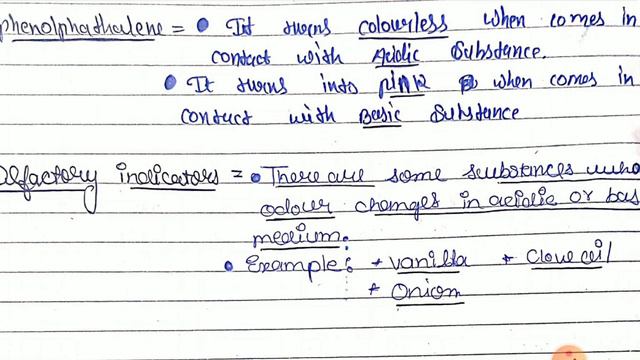 phenolphathalene = • It turns colourless when comes in
contact with Acidic Substance.
• It turns into pink when comes in
contact with Basic Substance
Olfactory indicators = • There are some substances who
odour changes in acidic or bas
medium.
• Example: * vanilla * Clove oil
* Onion